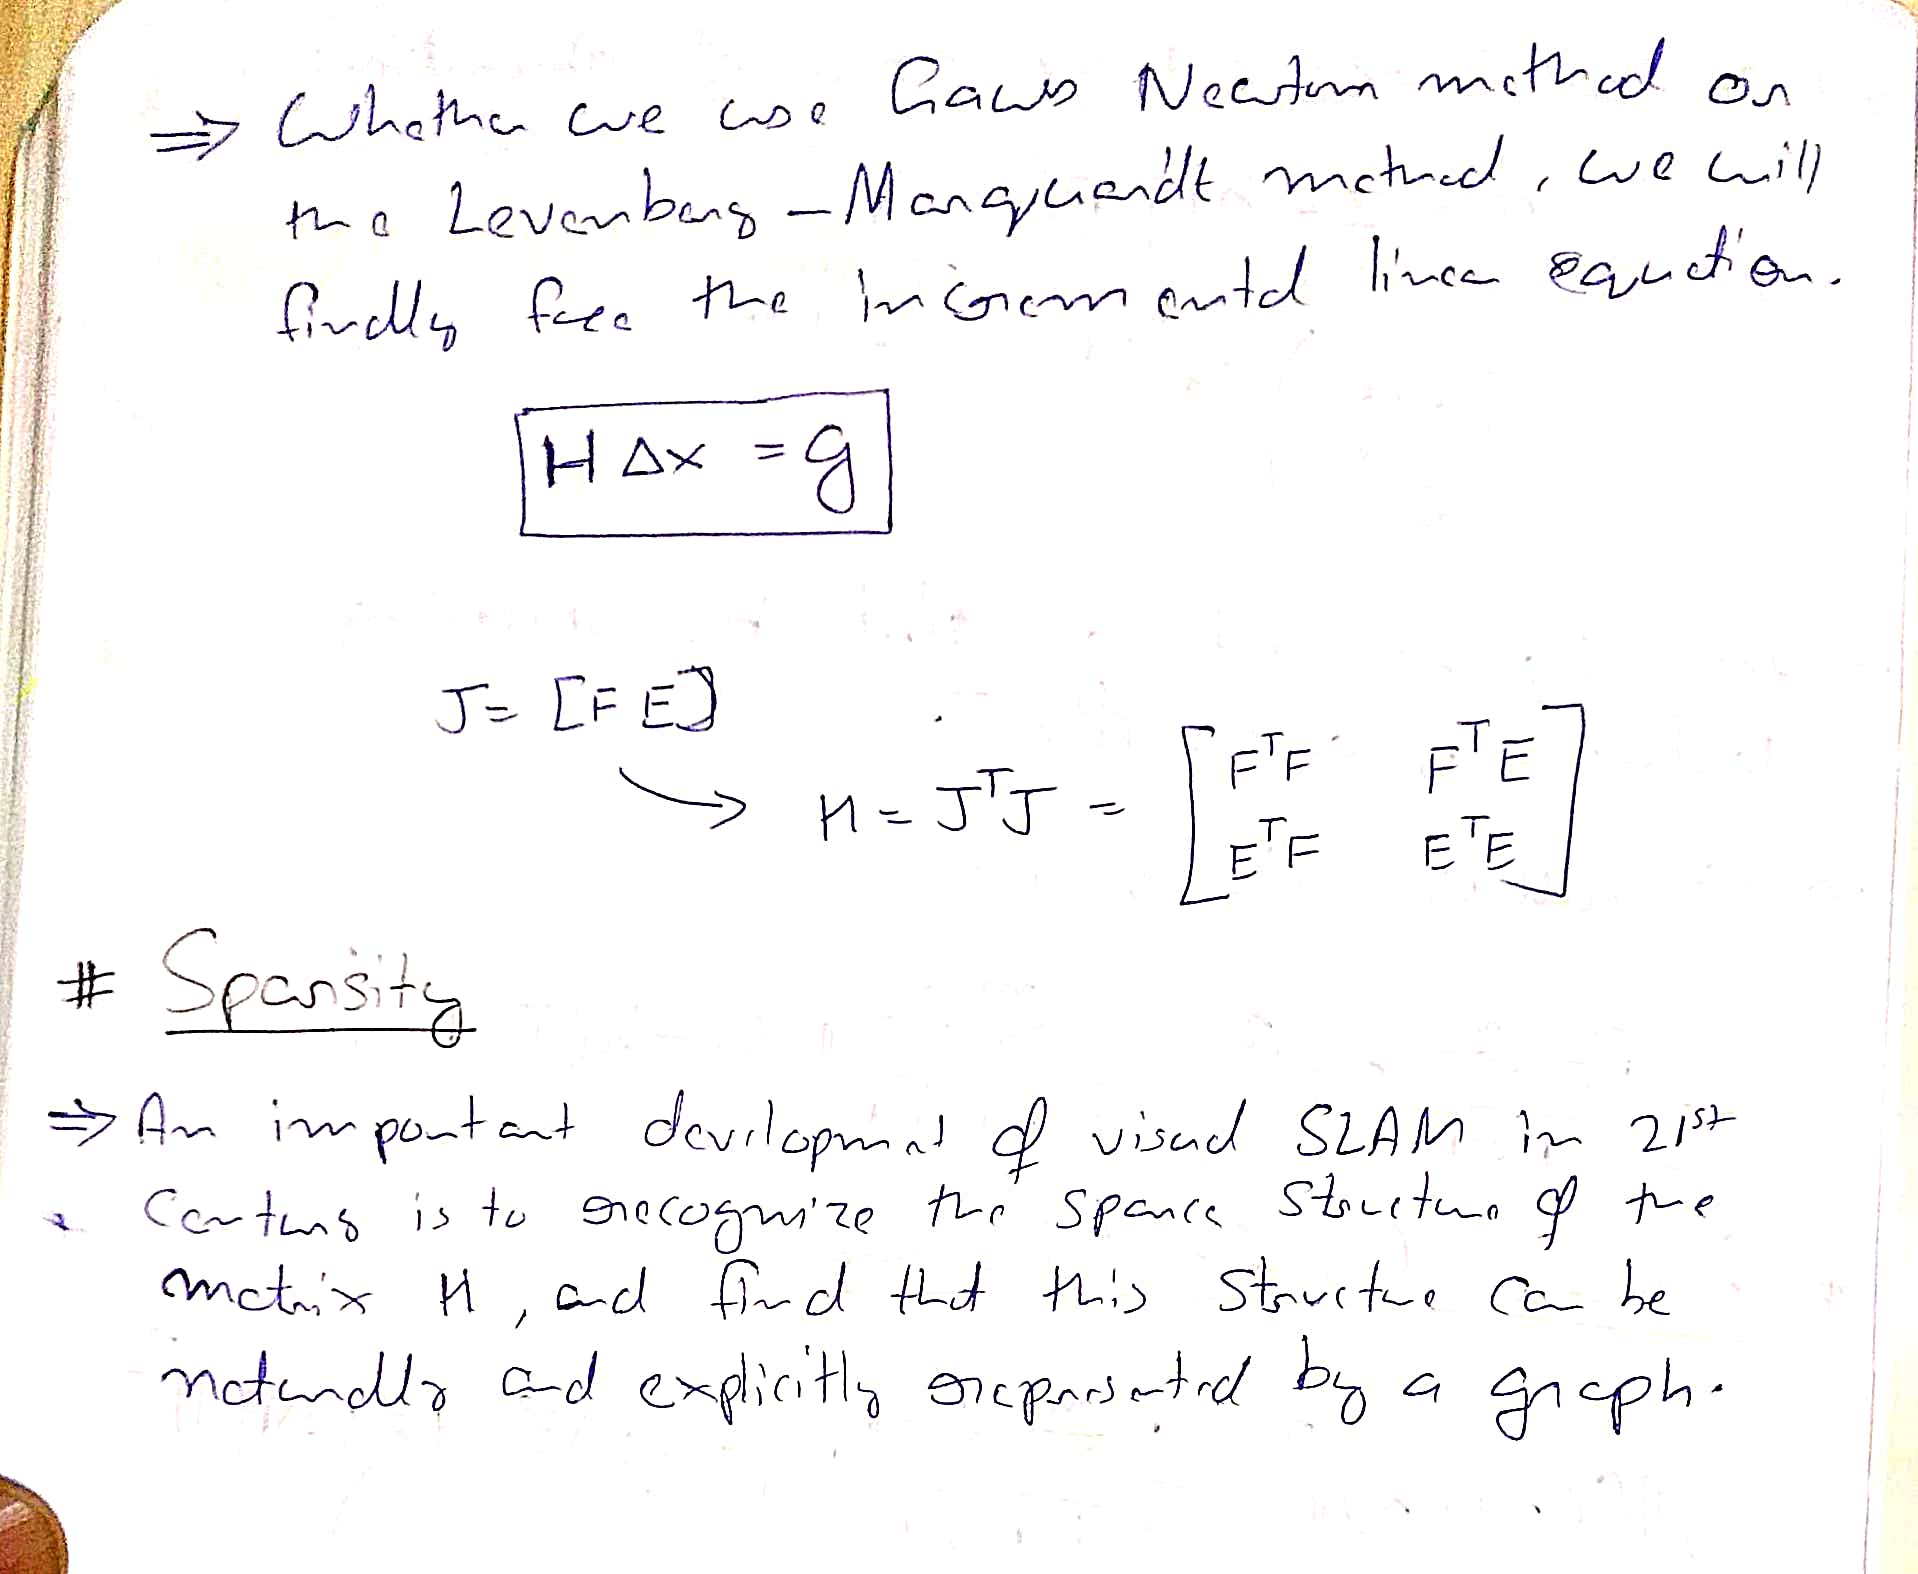 ⇒ Whether we use Gauss Newton method or
the Levenberg - Marquardt method, we will
finally face the incremental linear equation.
H Δx = g
J = [F E]
→ H = JᵀJ = [FᵀF FᵀE
EᵀF EᵀE]
# Sparsity
⇒ An important development of visual SLAM in 21st
Century is to recognize the sparse structure of the
matrix H, and find that this structure can be
naturally and explicitly represented by a graph.